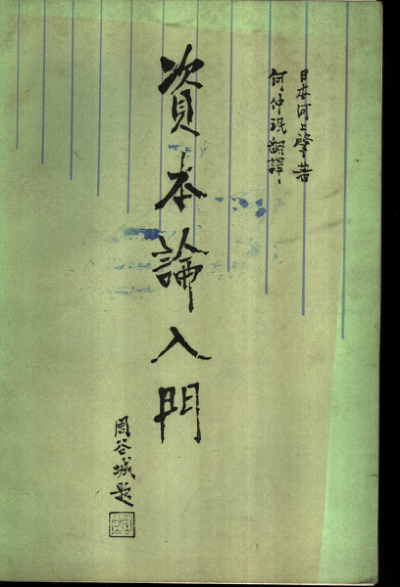 日本河上肇著
何仲珉翻譯
資本論入門
周谷城题